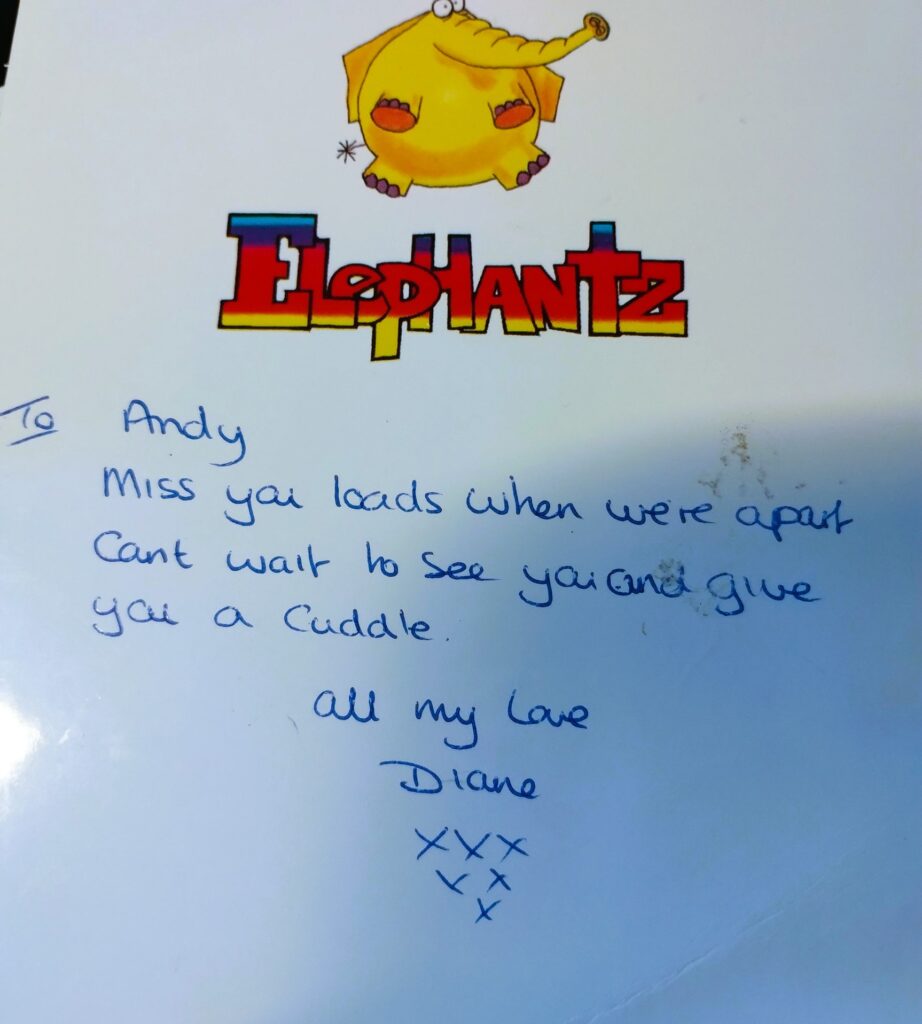 ElepHantz
To Andy
Miss you loads when we're apart
Cant wait to see you and give
you a Cuddle.
all my Love
Diane
XXX
XX
X